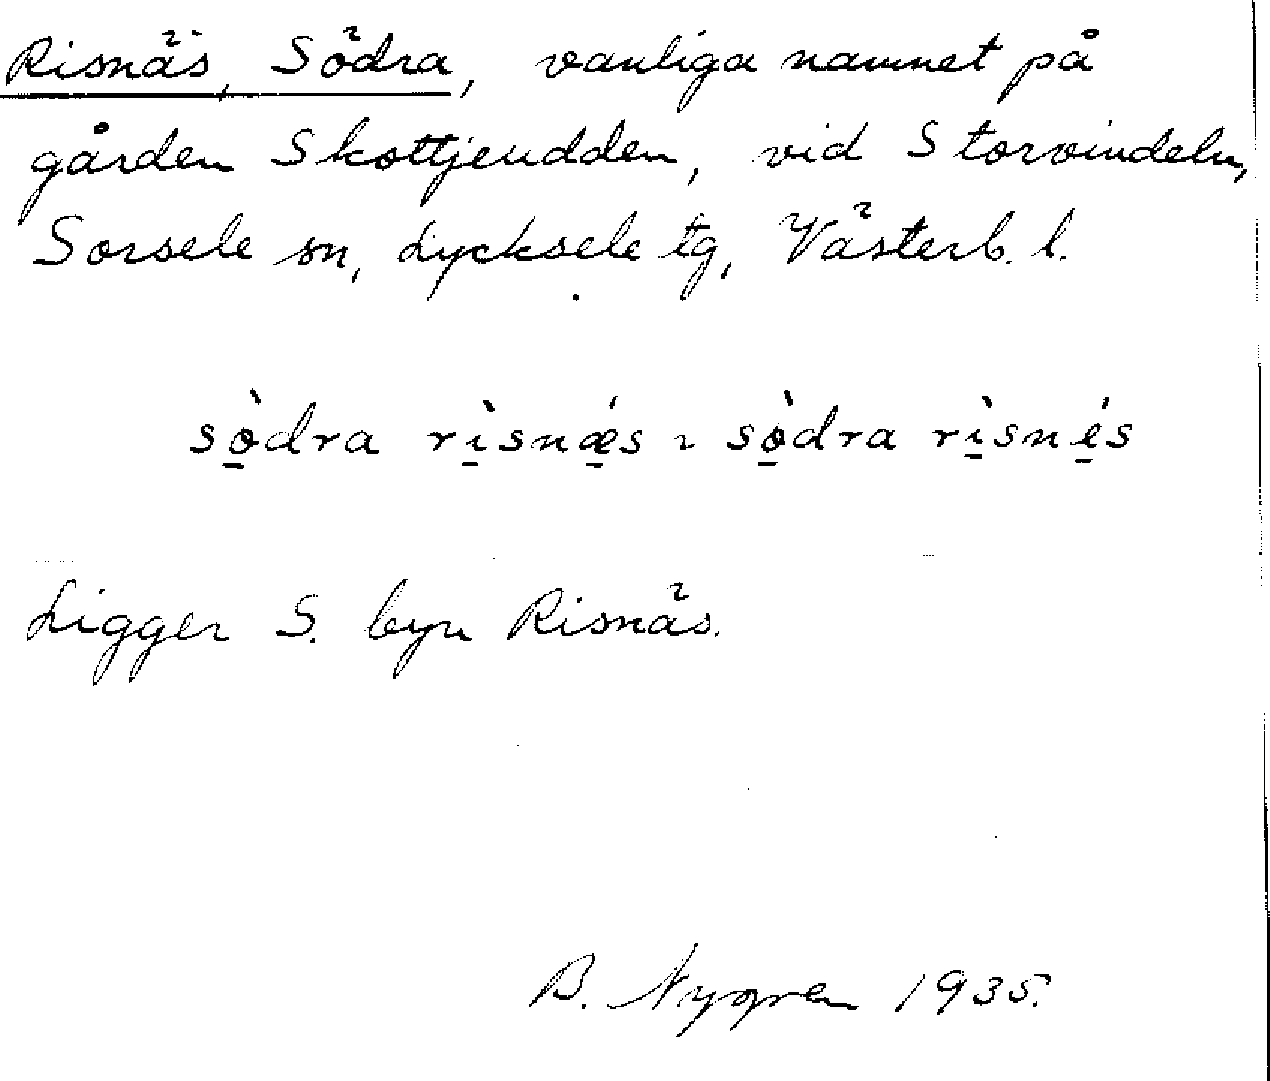 Risnäs, Södra, vanliga namnet på
gården Skottjeudden, vid Storvindeln,
Sorsele sn, Lycksele tg, Västerb. l.
sò̱dra rì̱snǽ̱s ~ sò̱dra rì̱sné̱s
Ligger S. byn Risnäs.
B. Nygren 1935.